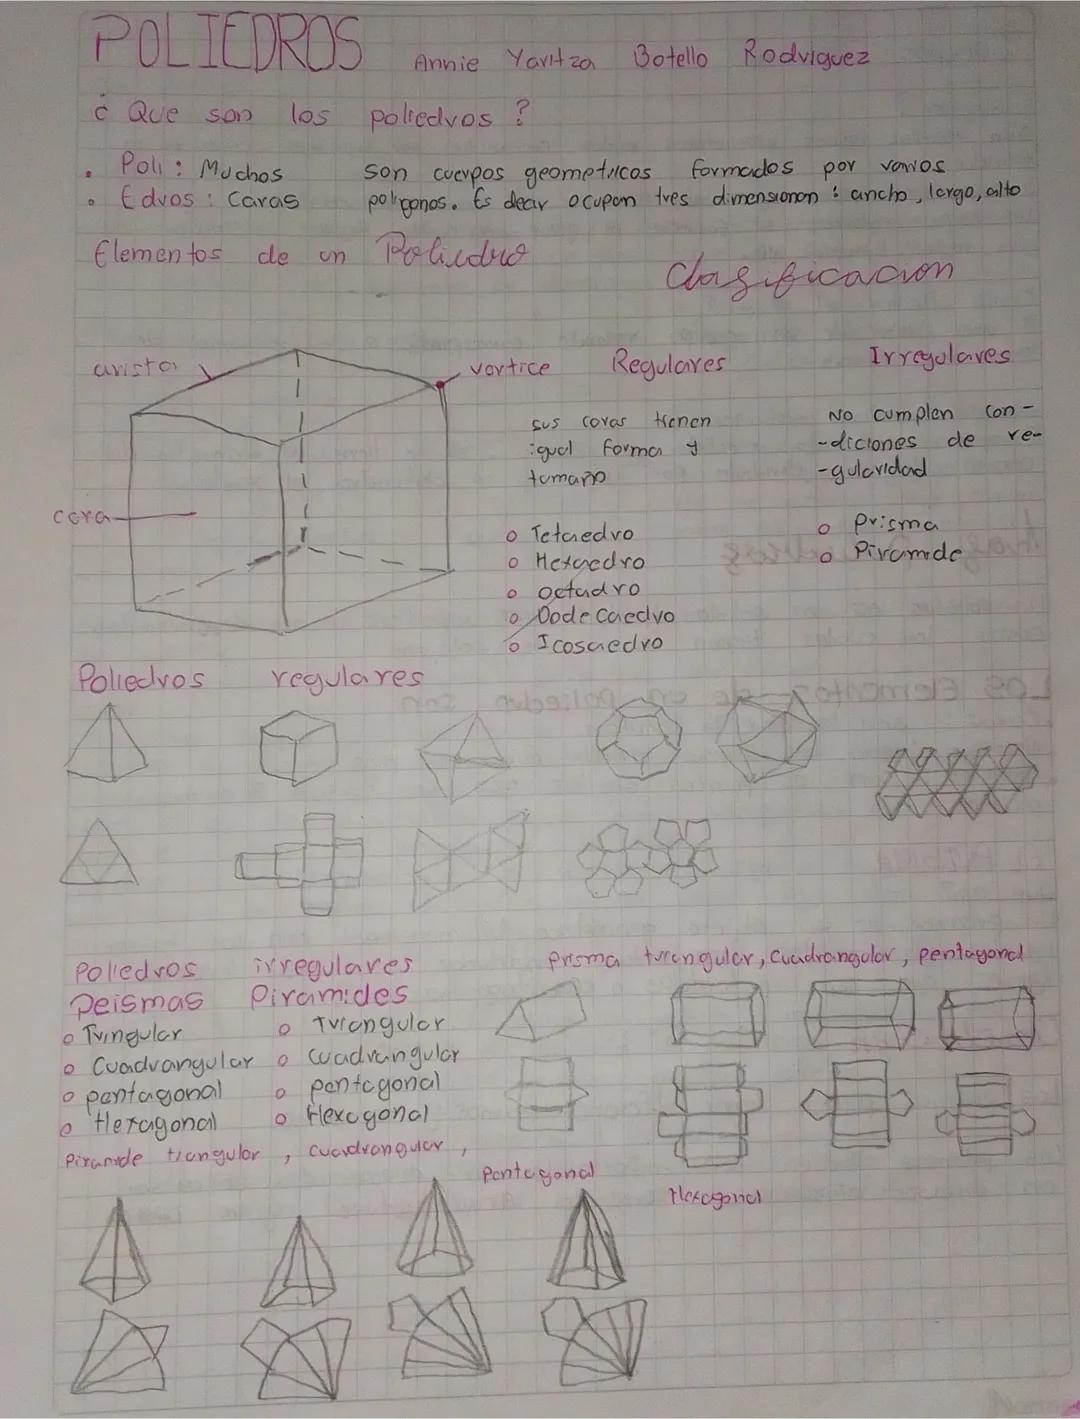 POLIEDROS Annie Yaritza Botello Rodriguez
¿ Que son los poliedros ?
• Poli : Muchos
• Edros : Caras
son cuerpos geometricos formados por varios
poligonos. Es decir ocupan tres dimensionon : ancho, largo, alto
Elementos de un Poliedro
arista
vertice
cara
Clasificacion
Regulares
sus caras tienen
igual forma y
tamaño
o Tetaedro
o Hexaedro
o octadro
o Dodecaedro
o Icosaedro
Irregulares
No cumplen con-
-diciones de re-
-gularidad
o prisma
o Piramide
Poliedros regulares
Poliedros irregulares
Peismas
o Tringular
o Cuadrangular
o pentagonal
o Hexagonal
Piramides
o Triangular
o cuadrangular
o pentagonal
o Hexagonal
Prisma triangular, Cuadrangular, pentagonal
Piramide triangular, cuadrangular,
Pentagonal
Hexagonal